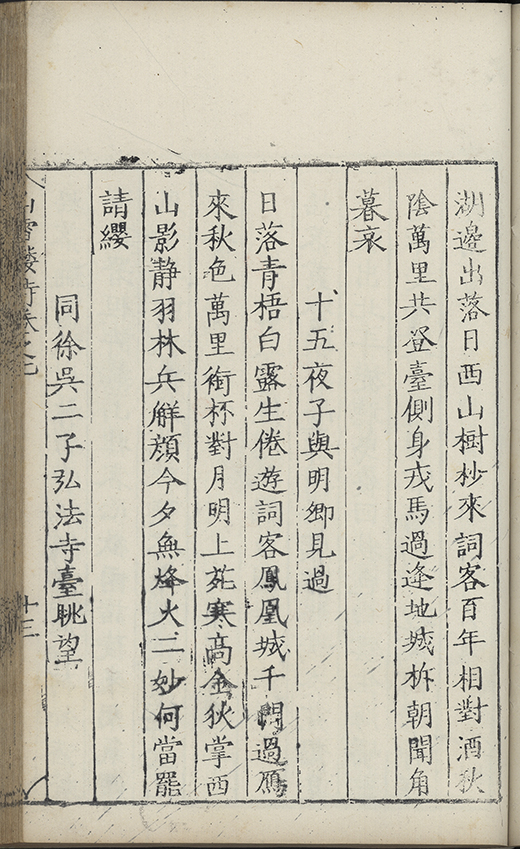 湖邊出落日西山樹杪來詞客百年相對酒秋
陰萬里共登臺側身戎馬過逢地城柝朝聞角
暮哀
十五夜子與明卿見過
日落青梧白露生倦遊詞客鳳凰城千門過鴈
來秋色萬里銜杯對月明上苑寒高金狄掌西
山影静羽林兵觧顏今夕無烽火二妙何當罷
請纓
同徐吳二子弘法寺臺眺望
山
樓
卷之
十三